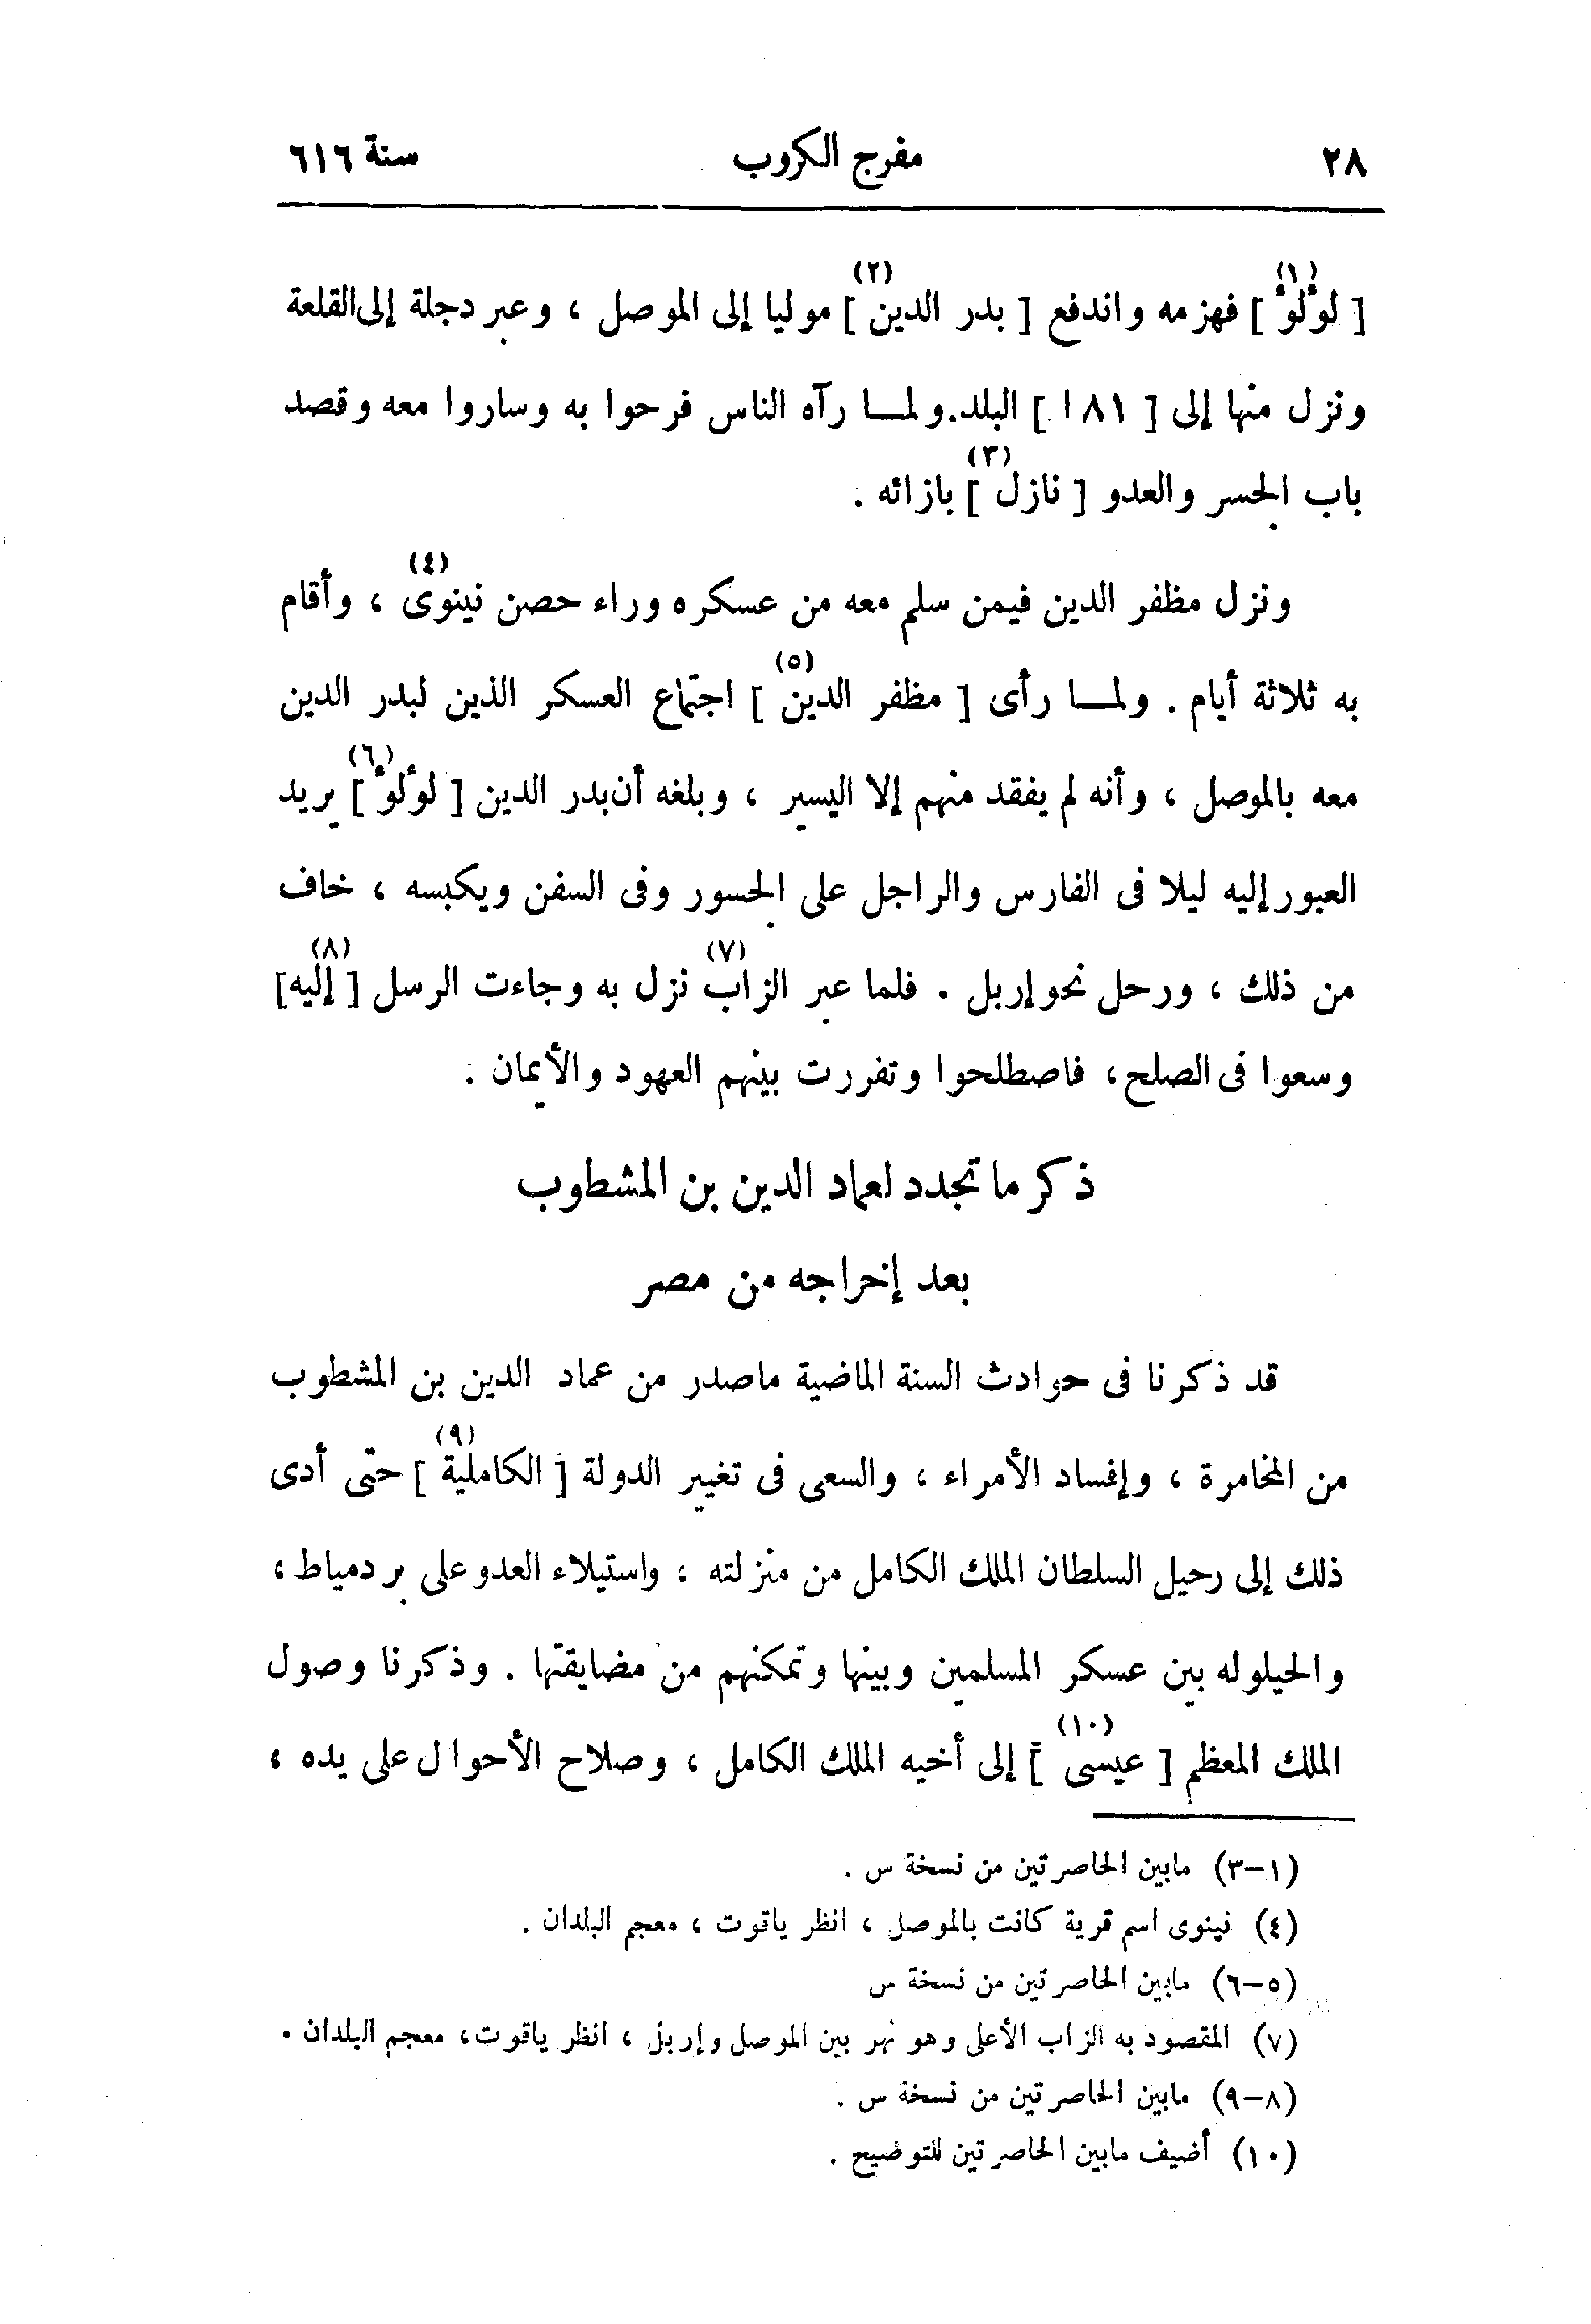 ٢٨ مفرج الكروب سنة ٦١٦
[ لؤلؤ (١) ] فهزمه واندفع [ بدر الدين (٢) ] موليا إلى الموصل ، وعبر دجلة إلى القلعة
ونزل منها إلى [ ١٨١ ] البلد. ولما رآه الناس فرحوا به وساروا معه وقصد
باب الجسر والعدو [ نازل (٣) ] بازائه .
ونزل مظفر الدين فيمن سلم معه من عسكره وراء حصن نينوى (٤) ، وأقام
به ثلاثة أيام . ولما رأى [ مظفر الدين (٥) ] اجتماع العسكر الذين لبدر الدين
معه بالموصل ، وأنه لم يفقد منهم إلا اليسير ، وبلغه أن بدر الدين [ لؤلؤ (٦) ] يريد
العبور إليه ليلا فى الفارس والراجل على الجسور وفى السفن ويكبسه ، خاف
من ذلك ، ورحل نحو إربل . فلما عبر الزاب (٧) نزل به وجاءت الرسل [ إليه (٨) ]
وسعوا فى الصلح ، فاصطلحوا وتفررت بينهم العهود والأيمان .
ذكر ما تجدد لعماد الدين بن المشطوب
بعد إخراجه من مصر
قد ذكرنا فى حوادث السنة الماضية ماصدر من عماد الدين بن المشطوب
من المخامرة ، وإفساد الأمراء ، والسعى فى تغيير الدولة [ الكاملية (٩) ] حتى أدى
ذلك إلى رحيل السلطان الملك الكامل من منزلته ، واستيلاء العدو على بر دمياط ،
والحيلوله بين عسكر المسلمين وبينها وتمكنهم من مضايقتها . وذكرنا وصول
الملك المعظم [ عيسى (١٠) ] إلى أخيه الملك الكامل ، وصلاح الأحوال على يده ،
(١-٣) مابين الحاصرتين من نسخة س .
(٤) نينوى اسم قرية كانت بالموصل ، انظر ياقوت ، معجم البلدان .
(٥-٦) مابين الحاصرتين من نسخة س
(٧) المقصود به الزاب الأعلى وهو نهر بين الموصل وإربل ، انظر ياقوت ، معجم البلدان .
(٨-٩) مابين الحاصرتين من نسخة س .
(١٠) أضيف مابين الحاصرتين للتوضيح .